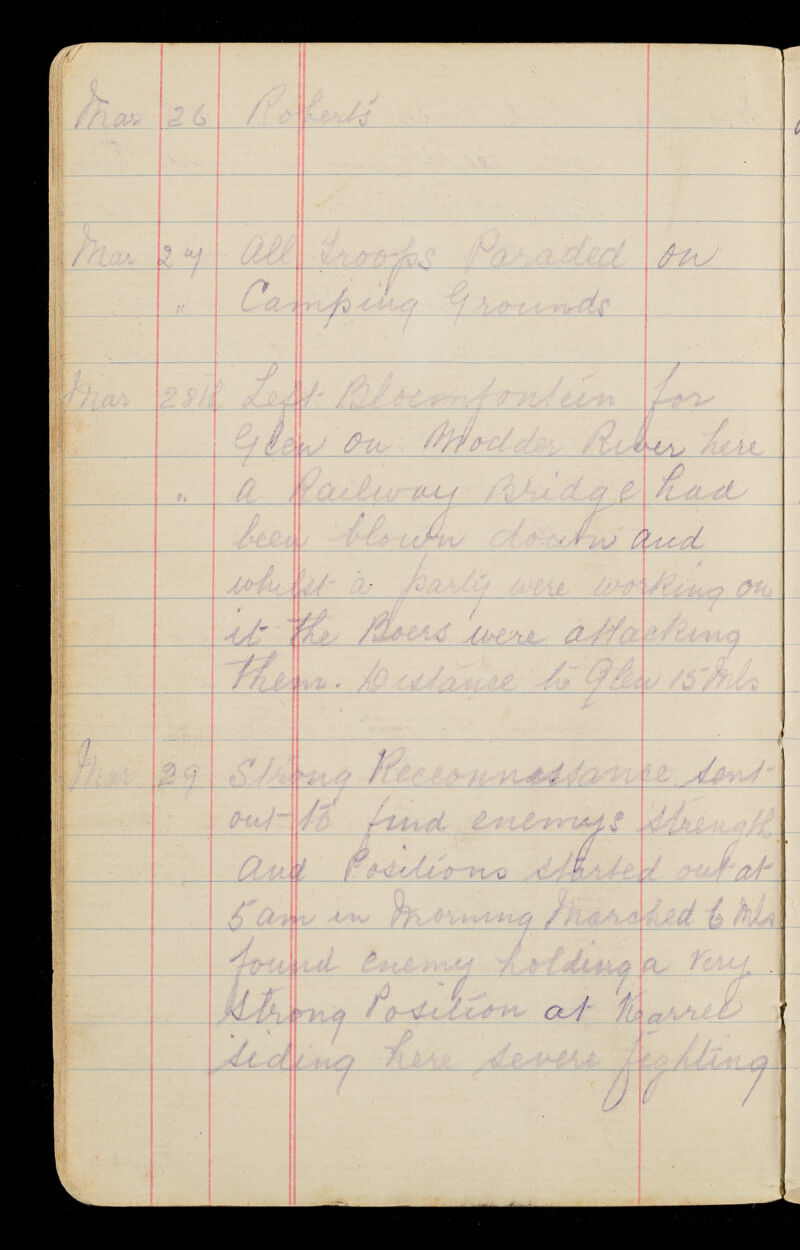 Mar 26 Roberts
Mar 27 All Troops Paraded on
" Camping Grounds
Mar 28th Left Bloemfontein for
Glen on Modder River here
" a Railway Bridge had
been blown down and
whilst a party were working on
it the Boers were attacking
them. Distance to Glen 15 Mls
Mar 29 Strong Recconnassance sent
out to find enemys strength
And Positions started out at
5 am in Morning Marched 6 Mls
found enemy holding a very
strong Position at Karree
siding here severe fighting